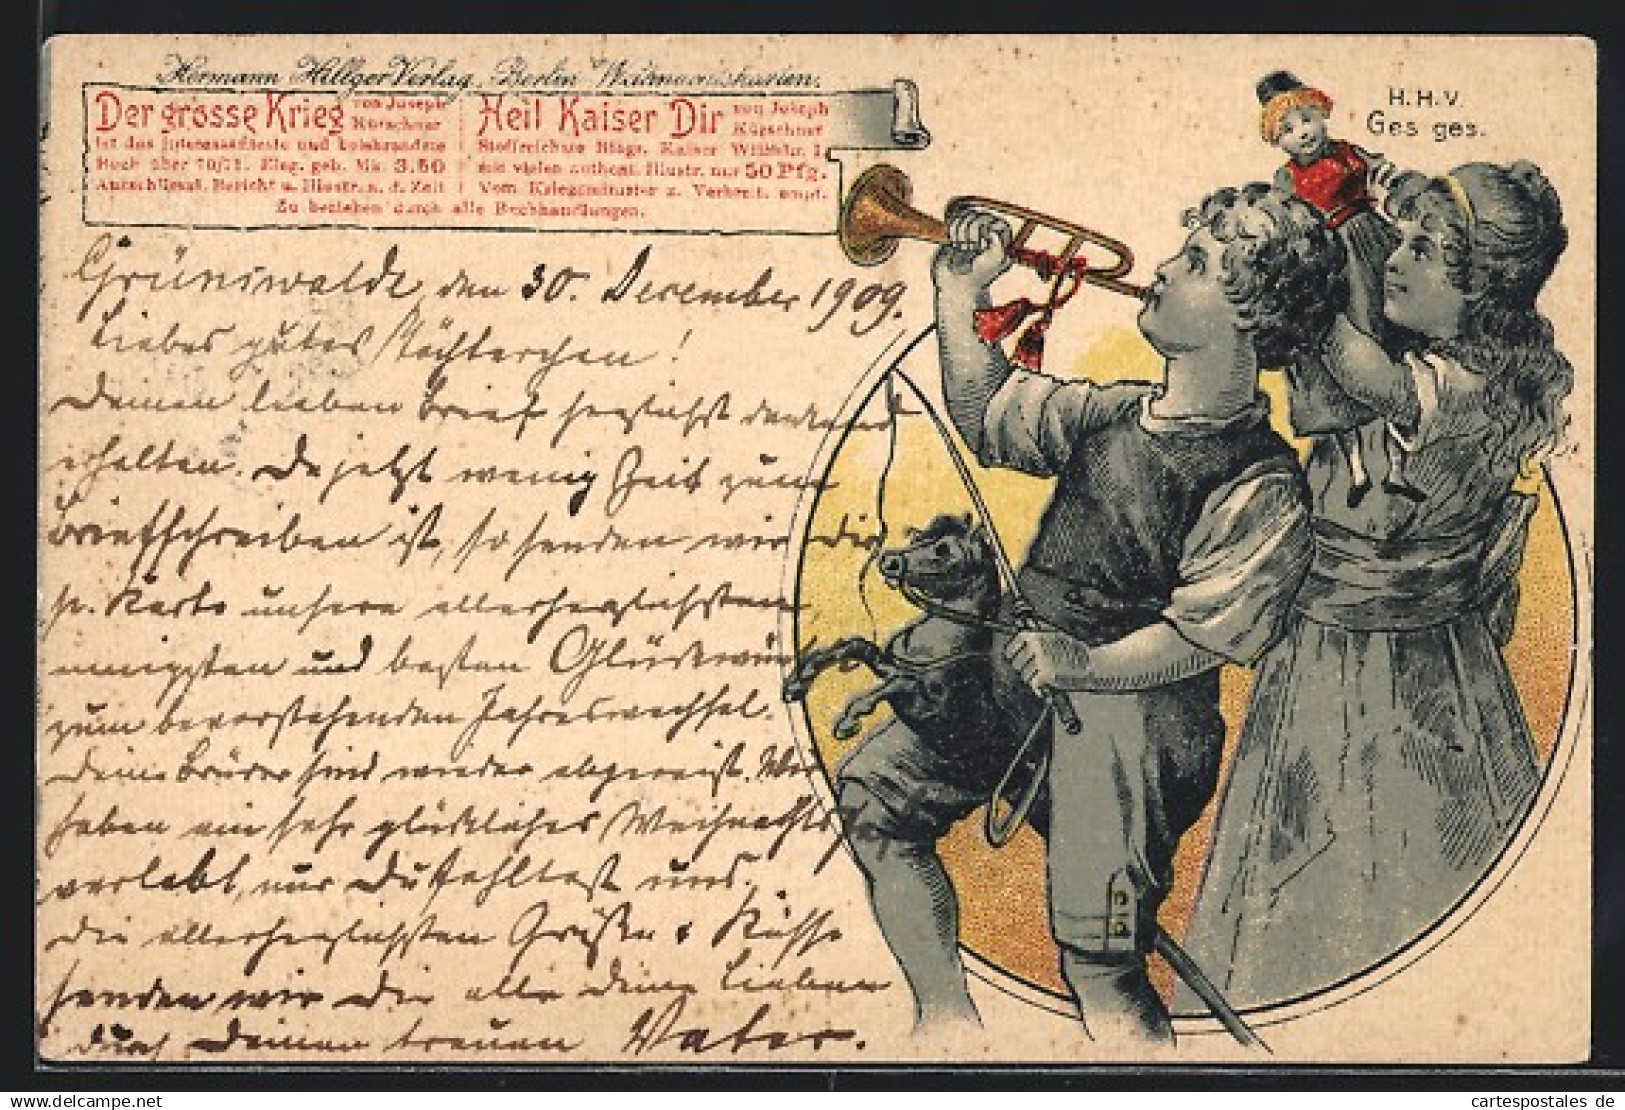 Hermann Hillger Verlag, Berlin
Der grosse Krieg von Joseph Kürschner
ist das interessanteste und belehrendste
Buch über 70/71. Eleg. geb. Mk 3.50
Bericht u. Illustr. a. d. Zeit
Heil Kaiser Dir von Joseph Kürschner
Stoffreichste Biogr. Kaiser Wilhelm I.
mit vielen authent. Illustr. nur 50 Pfg.
Vom Kriegsminister z. Verbreit. empf.
Zu beziehen durch alle Buchhandlungen.
H.H.V.
Ges. ges.
Grünewalde, den 30. December 1909.
Liebes gutes Töchterchen!
Deinen lieben Brief herzlichst dankend
erhalten. Da jetzt wenig Zeit zum
Briefschreiben ist, so senden wir Dir
pr. Karte unsere allerherzlichsten
innigsten und besten Glückwünsche
zum bevorstehenden Jahreswechsel.
Deine Brüder sind wieder abgereist. Wir
haben ein sehr glückliches Weihnachtsfest
verlebt, nur Du fehltest uns.
Die allerherzlichsten Grüße & Küsse
senden wir Dir alle Deine Lieben
durch Deinen treuen Vater.
cartespostales.de